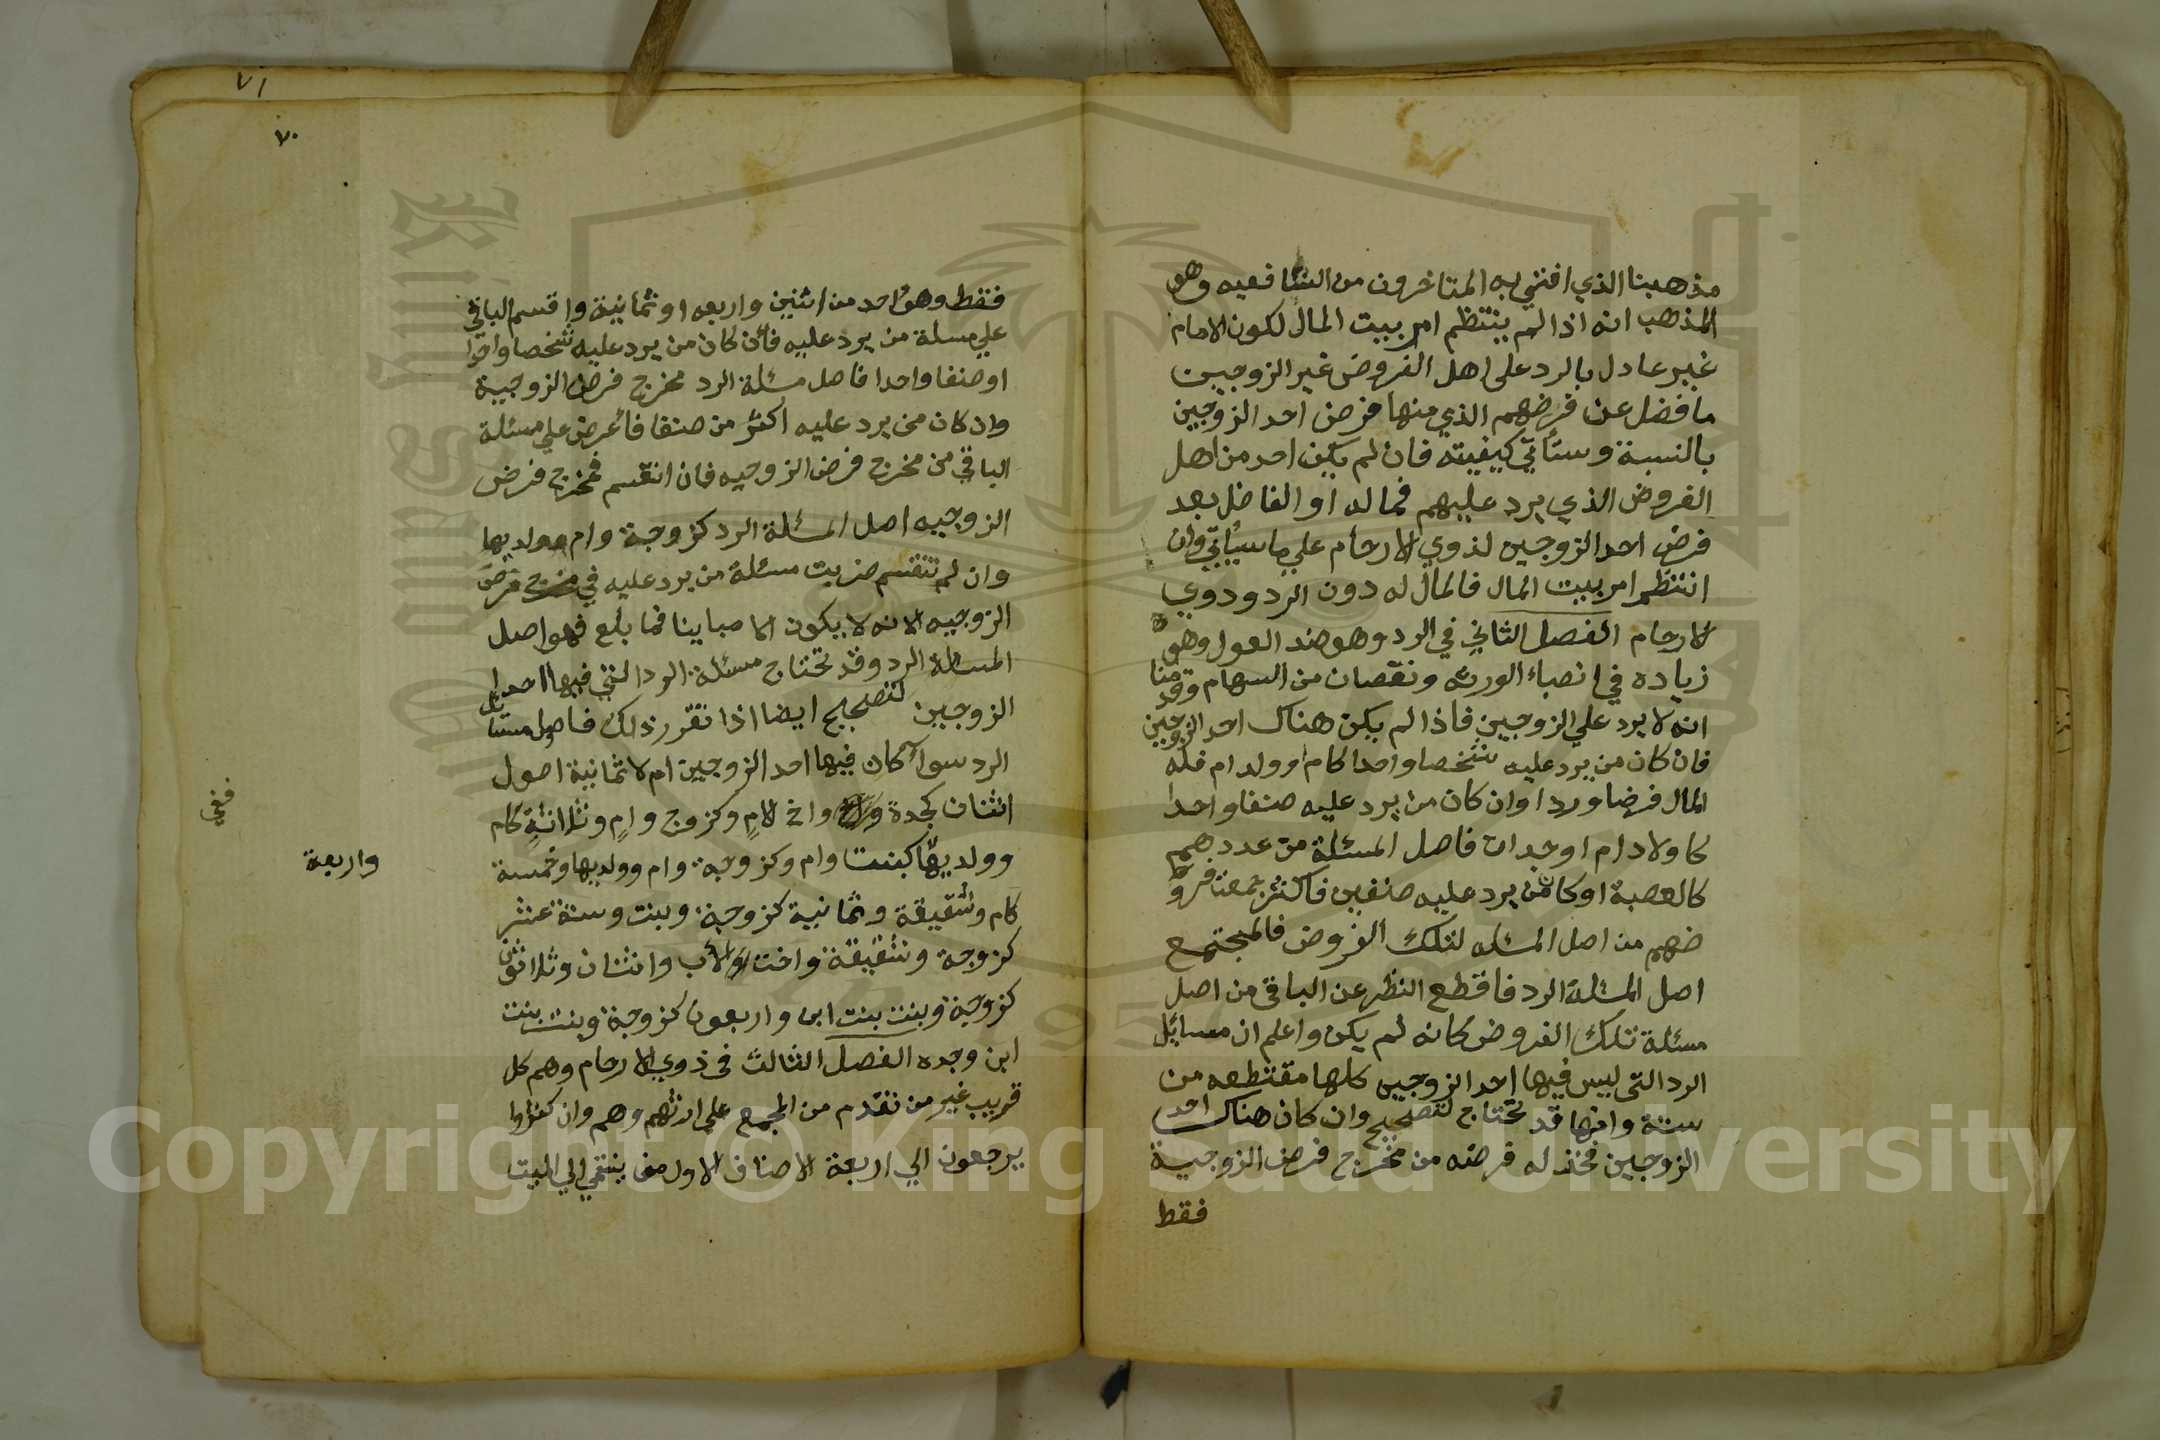 مذهبنا الذي افتي به المتاخرون من الشافعيه وهو
المذهب انه اذا لم ينتظم امر بيت المال لكون الامام
غير عادل بالرد على اهل الفروض غير الزوجين
ما فضل عن فرضهم الذي منها فرض احد الزوجين
بالنسبة وستأتي كيفيته فان لم يكن احد من اهل
الفروض الذي يرد عليهم فماله او الفاضل بعد
فرض احد الزوجين لذوي الارحام علي ما سيأتي وان
انتظم امر بيت المال فالمال له دون الرد وذوي
الارحام الفصل الثاني في الرد وهو ضد العول وهو
زياده في انصباء الورثه ونقصان من السهام وقدمنا
انه لا يرد علي الزوجين فاذا لم يكن هناك احد الزوجين
فان كان من يرد عليه شخصا واحدا كام او ولد ام فله
المال فرضا وردا وان كان من يرد عليه صنفا واحدا
كاولاد ام او جدات فاصل المسئلة من عددهم
كالعصبة او كان من يرد عليه صنفين فاكثر جمعت فرو
ضهم من اصل المسئله لتلك الفروض فالمجتمع
اصل المسئلة الرد فاقطع النظر عن الباقي من اصل
مسئلة تلك الفروض كانه لم يكن واعلم ان مسايل
الرد التي ليس فيها احد الزوجين كلها مقتطعه من
ستة وانها قد تحتاج لتصحيح وان كان هناك احد
الزوجين فخذ له فرضه من مخرج فرض الزوجية
فقط
٧١
٧٠
فقط وهو احد من اثنين واربعه او ثمانية واقسم الباقي
علي مسلة من يرد عليه فأن كان من يرد عليه شخصا واحدا
او صنفا واحدا فاصل مسئلة الرد مخرج فرض الزوجية
وان كان من يرد عليه اكثر من صنفا فأعرض علي مسئلة
الباقي من مخرج فرض الزوجيه فان انقسم فمخرج فرض
الزوجيه اصل المسئلة الرد كزوجة وام وولديها
وان لم تنقسم ضربت مسئلة من يرد عليه في مخرج فرض
الزوجيه لانه لا يكون الا مباينا فما بلغ فهو اصل
المسئلة الرد وقد تحتاج مسئلة الرد التي فيها احد
الزوجين لتصحيح ايضا اذا تقرر ذلك فاصول مسائل
الرد سواء كان فيها احد الزوجين ام لا ثمانية اصول
اثنان كجدة واخ لام وكزوج وام وثلاثة كام
وولديها
واربعة
كبنت وام وكزوجة وام وولديها وخمسة
كام وشقيقة وثمانية كزوجة وبنت وستة عشر
كزوجة وشقيقة واخت لأب واثنان وثلاثون
كزوجة وبنت وبنت ابن واربعون كزوجة وبنت وبنت
ابن وجده الفصل الثالث في ذوي الارحام وهم كل
قريب غير من تقدم من المجمع على ارثهم وهم وان كثروا
يرجعون الي اربعة الاصناف الاول من ينتمي الي الميت
ففي
Copyright © King Saud University
King Saud University
1957